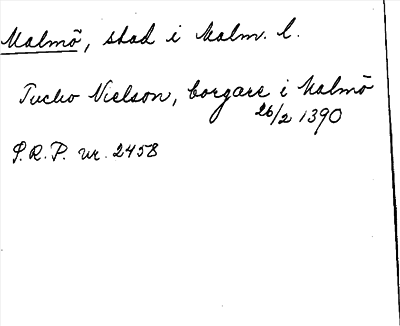 Malmö, stad i Malm. l.
Tucho Nielson, borgare i Malmö
26/2 1390
S.R.P. nr. 2458